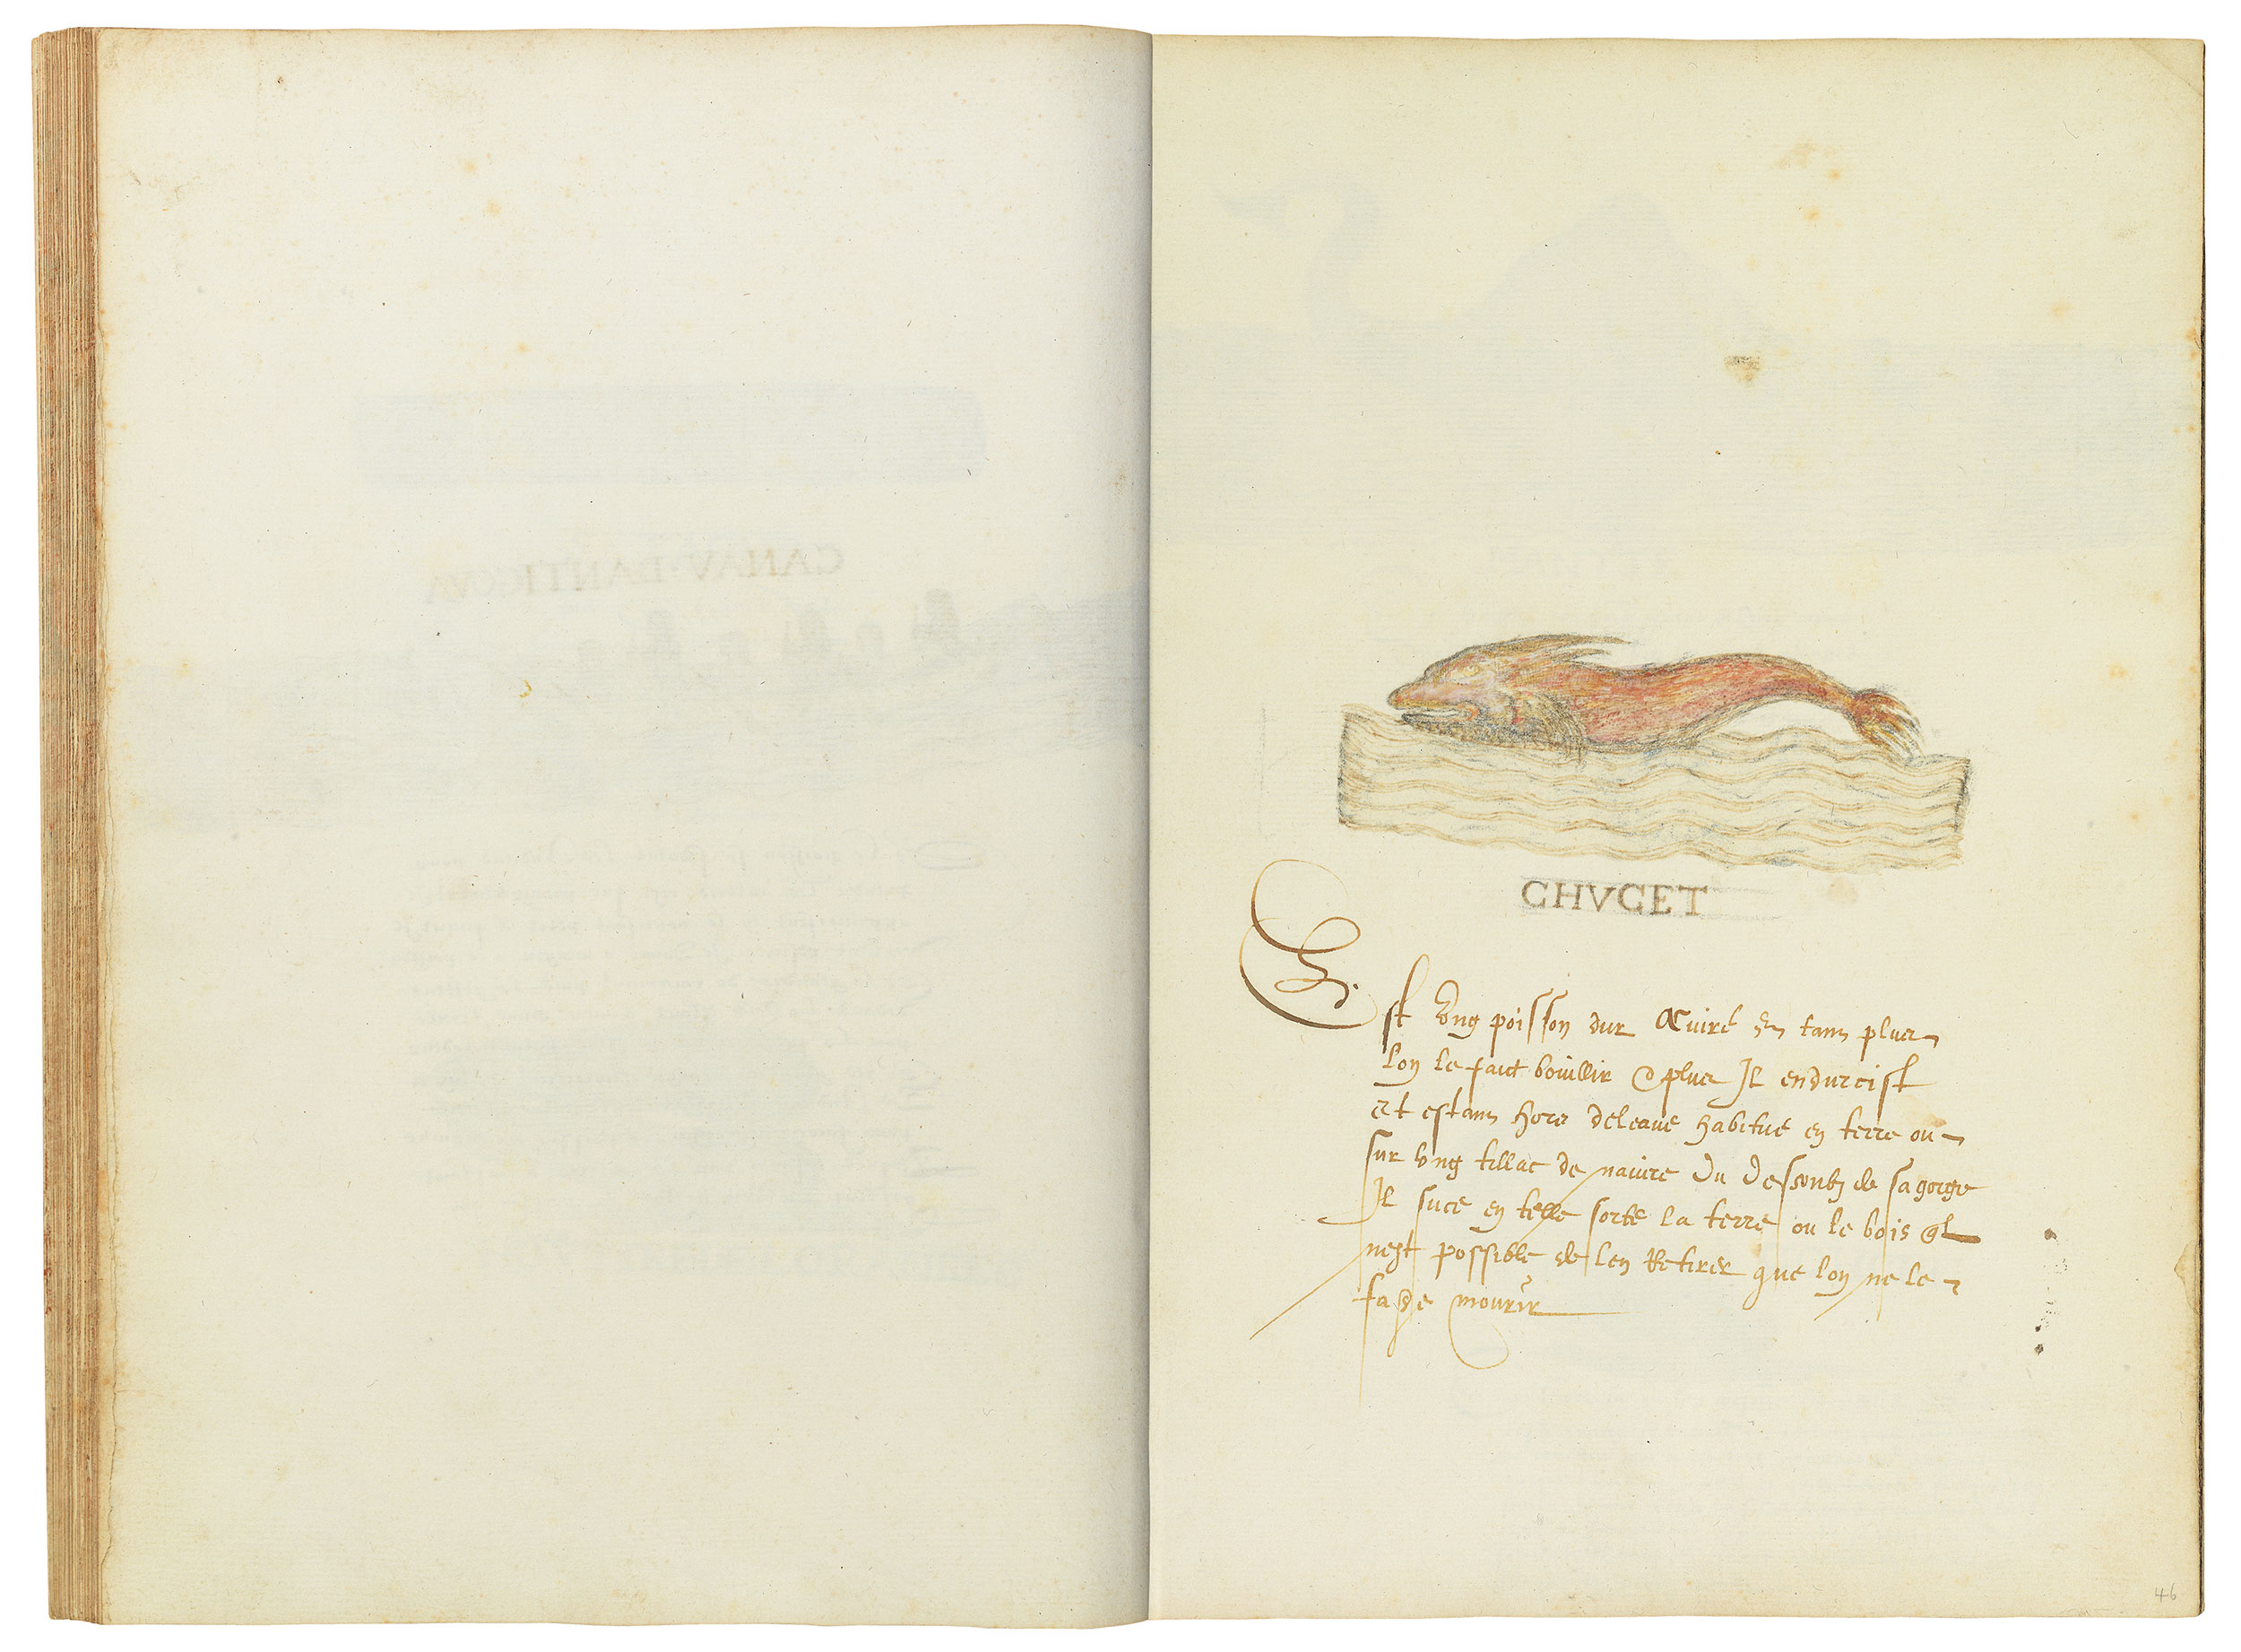 CANAV DANTICQVA
CHVCET
Est vng poisson dur A cuire Et tant plus
lon le faict bouillir & plus Il endurcist
Et estant hors deleaue habitué en terre ou
sur vng tillac de nauire du dessoubz de sa gorge
Il suce en telle sorte la terre ou le bois ql
nest possible de len Retirer que lon ne le
face mourir
46